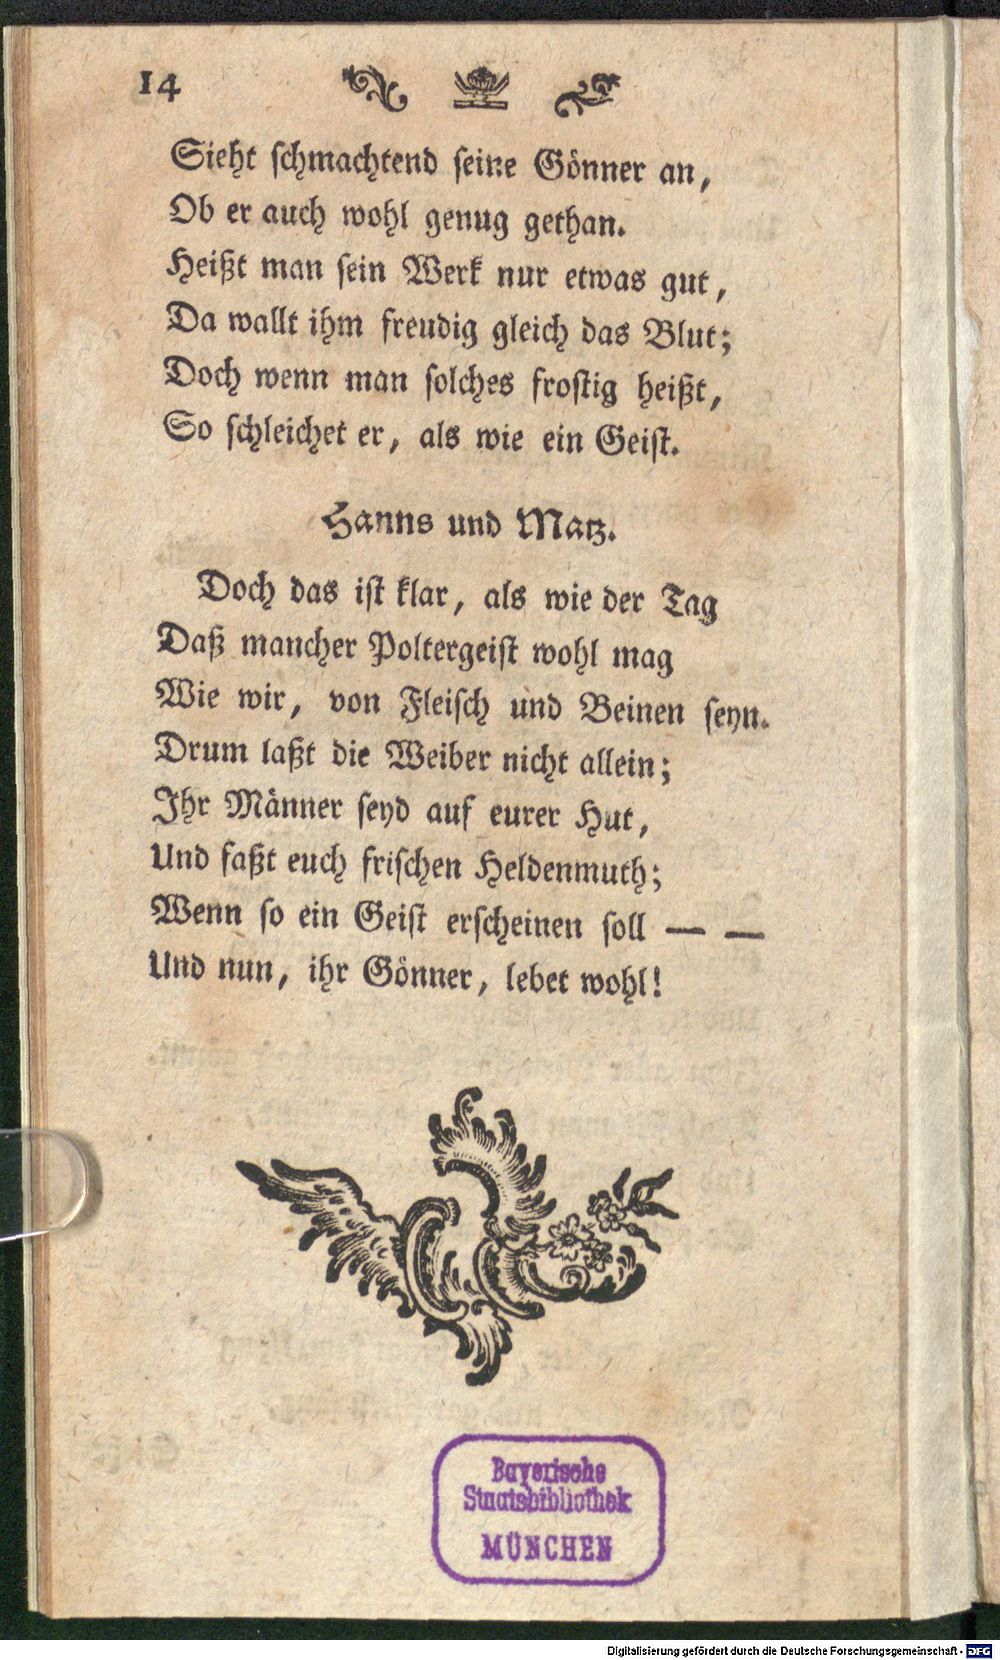 14
Sieht schmachtend seine Gönner an,
Ob er auch wohl genug gethan.
Heißt man sein Werk nur etwas gut,
Da wallt ihm freudig gleich das Blut;
Doch wenn man solches frostig heißt,
So schleichet er, als wie ein Geist.
Hanns und Matz.
Doch das ist klar, als wie der Tag
Daß mancher Poltergeist wohl mag
Wie wir, von Fleisch und Beinen seyn.
Drum laßt die Weiber nicht allein;
Ihr Männer seyd auf eurer Hut,
Und faßt euch frischen Heldenmuth;
Wenn so ein Geist erscheinen soll — —
Und nun, ihr Gönner, lebet wohl!
Bayerische
Staatsbibliothek
MÜNCHEN
Digitalisierung gefördert durch die Deutsche Forschungsgemeinschaft - DFG